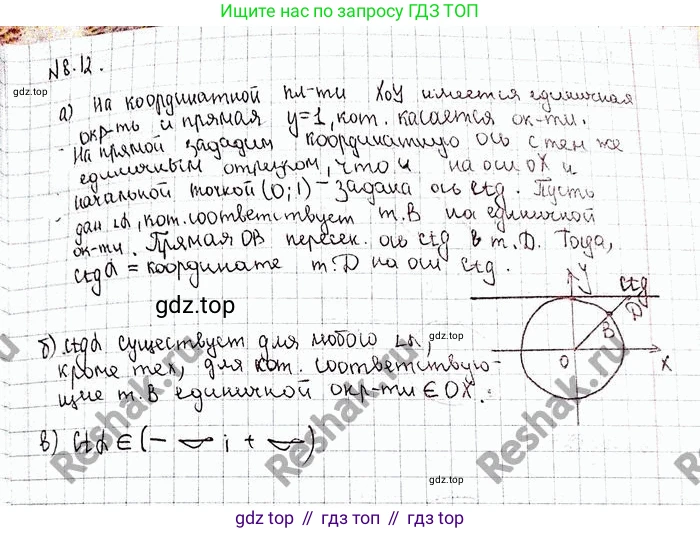 Ищите нас по запросу ГДЗ ТОП
N8.12.
gdz.top
а) На координатной пл-ти XOY имеется единичная
окр-ть и прямая y=1, кот. касается ок-ти.
На прямой зададим координатную ось с тем же
единичным отрезком, что и на оси OX и
начальной точкой (0;1) – задана ось ctg. Пусть
дан ∠α, кот. соответствует т. B на единичной
ок-ти. Прямая OB пересек. ось ctg в т. D. Тогда,
ctgα = координате т. D на оси ctg.
y ctg
D
B
O
X
gdz.top
б) ctgα существует для любого ∠α,
кроме тех, для кот. соответствую-
щие т. B единичной окр-ти ∈ OX.
в) ctα ∈ (-∞; +∞)
Reshak.ru
Reshak.ru
Reshak.ru
gdz.top
gdz.top
gdz.top
gdz.top
gdz.top // гдз.топ // gdz.top // гдз.топ // gdz.top